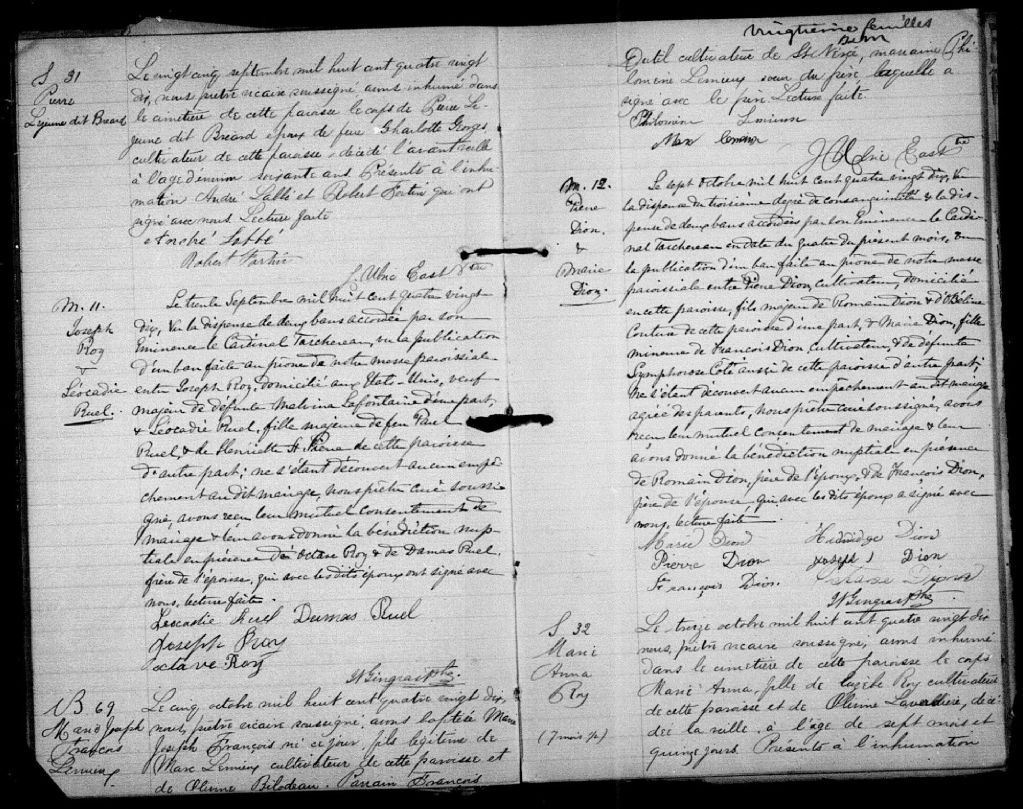 S 31
Pierre
Lejeune dit Breard
Le vingt cinq septembre mil huit cent quatre vingt
dix, nous prêtre vicaire soussigné avons inhumé dans
le cimetière de cette paroisse le corps de Pierre Le-
jeune dit Breard époux de feue Charlotte Georges,
cultivateur de cette paroisse décédé l'avant veille
à l'age d'environ soixante ans Présents à l'inhu-
mation André Labbé et Robert Fortier qui ont
signé avec nous Lecture faite
André Labbé
Robert Fortier
East Ptre
M. 11.
Joseph
Roy
&
Léocadie
Ruel.
Le trente Septembre mil huit cent quatre vingt-
dix, Vu la dispense de deux bans accordée par son
Eminence le Cardinal Taschereau, vu la publication
d'un ban faite au prône de notre messe paroissiale
entre Joseph Roy, domicilié aux Etats-Unis, veuf
majeur de défunte Malvina Lafontaine d'une part,
& Léocadie Ruel, fille majeure de feu Paul
Ruel, & de Henriette St Pierre de cette paroisse
d'autre part; ne s'étant découvert aucun empê-
chement au dit mariage, nous prêtre curé soussi-
gné, avons reçu leur mutuel consentement de
mariage & leur avons donné la bénédiction nup-
tiale en présence de Octave Roy & de Damas Ruel,
frère de l'épouse, qui avec les dits époux ont signé avec
nous, lecture faite.
Leocadie Ruel Damas Ruel
Joseph Roy
Octave Roy
N Gingras Ptre
B 69
Marie Joseph
François
Lemieux
Le cinq octobre mil huit cent quatre vingt dix,
nous, prêtre vicaire soussigné, avons baptisé Marie
Joseph François né ce jour, fils légitime de
Marc Lemieux cultivateur de cette paroisse et
de Olivine Bilodeau. Parrain François
vingtième feuilles
Dutil cultivateur de St Nérée, marraine Phi-
lomene Lemieux sœur du père, laquelle a
signé avec le père. Lecture faite.
Philomène Lemieux
Marc Lemieux
East Ptre
M. 12.
Pierre
Dion.
&
Marie
Dion.
Le sept octobre mil huit cent quatre vingt dix, Vu
la dispense du troisième degré de consanguinité & la dis-
pense de deux bans accordées par son Eminence le Cardi-
nal Taschereau en date du quatre du présent mois, Vu
la publication d'un ban faite au prône de notre messe
paroissiale entre Pierre Dion, cultivateur, domicilié
en cette paroisse, fils majeur de Romain Dion & d'Obéline
Couture de cette paroisse d'une part, & Marie Dion, fille
mineure de François Dion, cultivateur, & de défunte
Symphorose Coté aussi de cette paroisse d'autre part;
ne s'étant découvert aucun empêchement au dit mariage
agréé des parents, nous prêtre curé soussigné, avons
reçu leur mutuel consentement de mariage & leur
avons donné la bénédiction nuptiale en présence
de Romain Dion, père de l'époux, & de François Dion,
père de l'épouse qui avec les dits époux a signé avec
nous, lecture faite.
Marie Dion Dion
Pierre Dion Joseph Dion
François Dion. Dion
N Gingras Ptre
S 32
Marie
Anna
Roy
(7 mois ½)
Le treize octobre mil huit cent quatre vingt dix
nous, prêtre vicaire soussigné, avons inhumé
dans le cimetière de cette paroisse le corps
Marie Anna, fille de Eugèbe Roy cultivateur
de cette paroisse et de Olivine Lavallière, décé-
dée la veille, à l'âge de sept mois et
quinze jours. Présents à l'inhumation